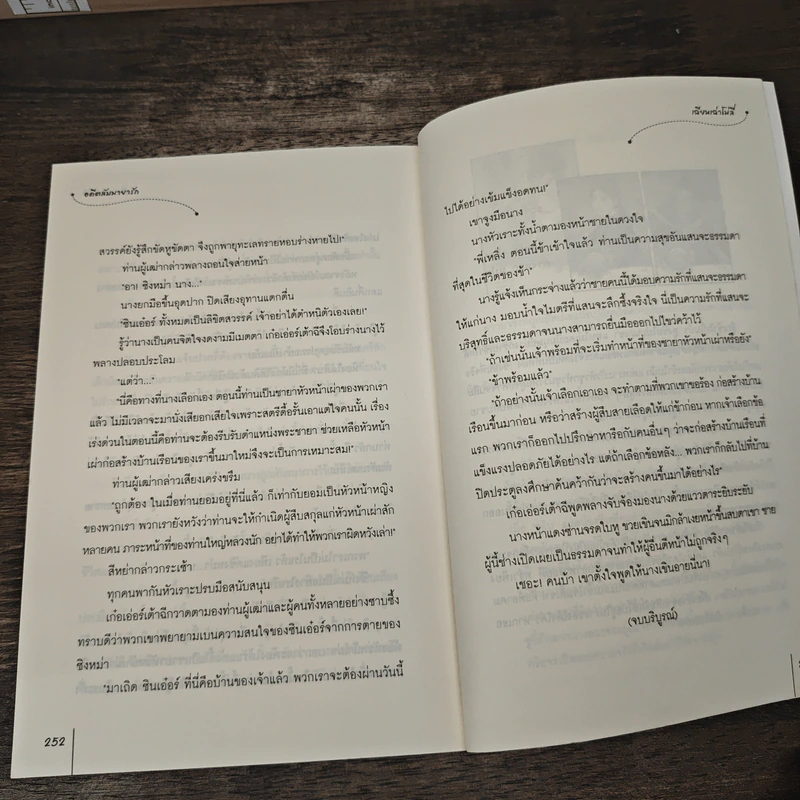 อดีตลับมายารัก
สวรรค์ยังรู้สึกขัดหูขัดตา จึงถูกพายุทะเลทรายหอบร่างหายไป!"
ท่านผู้เฒ่ากล่าวพลางถอนใจส่ายหน้า
"อา! ซิงหม่า นาง..."
นางยกมือขึ้นอุดปาก ปิดเสียงอุทานแตกตื่น
"ซินเอ๋อร์ ทั้งหมดเป็นลิขิตสวรรค์ เจ้าอย่าได้ตำหนิตัวเองเลย!"
รู้ว่านางเป็นคนจิตใจงดงามมีเมตตา เก๋อเอ่อร์เต้าฉีจึงโอบร่างนางไว้
พลางปลอบประโลม
"แต่ว่า..."
"นี่คือทางที่นางเลือกเอง ตอนนี้ท่านเป็นชายาหัวหน้าเผ่าของพวกเรา
แล้ว ไม่มีเวลาจะมานั่งเสียอกเสียใจเพราะสตรีดื้อรั้นเอาแต่ใจคนนั้น เรื่อง
เร่งด่วนในตอนนี้คือท่านจะต้องรีบรับตำแหน่งพระชายา ช่วยเหลือหัวหน้า
เผ่าก่อสร้างบ้านเรือนของเราขึ้นมาใหม่จึงจะเป็นการเหมาะสม!"
ท่านผู้เฒ่ากล่าวเสียงเคร่งขรึม
"ถูกต้อง ในเมื่อท่านยอมอยู่ที่นี่แล้ว ก็เท่ากับยอมเป็นหัวหน้าหญิง
ของพวกเรา พวกเรายังหวังว่าท่านจะให้กำเนิดผู้สืบสกุลแก่หัวหน้าเผ่าสัก
หลายคน ภาระหน้าที่ของท่านใหญ่หลวงนัก อย่าได้ทำให้พวกเราผิดหวังเล่า!"
สีหย่ากล่าวกระเซ้า
ทุกคนพากันหัวเราะปรบมือสนับสนุน
เก๋อเอ่อร์เต้าฉีกวาดตามองท่านผู้เฒ่าและผู้คนทั้งหลายอย่างซาบซึ้ง
ทราบดีว่าพวกเขาพยายามเบนความสนใจของซินเอ๋อร์จากการตายของ
ซิงหม่า
"มาเถิด ซินเอ๋อร์ ที่นี่คือบ้านของเจ้าแล้ว พวกเราจะต้องผ่านวันนี้
252
เฉียนเฉ่าโม่ลี่
ไปได้อย่างเข้มแข็งอดทน!"
เขาจูงมือนาง
นางหัวเราะทั้งน้ำตามองหน้าชายในดวงใจ
"พี่เหลิ่ง ตอนนี้ข้าเข้าใจแล้ว ท่านเป็นความสุขอันแสนจะธรรมดา
ที่สุดในชีวิตของข้า"
นางรู้แจ้งเห็นกระจ่างแล้วว่าชายคนนี้ได้มอบความรักที่แสนจะธรรมดา
ให้แก่นาง มอบน้ำใจไมตรีที่แสนจะลึกซึ้งจริงใจ นี่เป็นความรักที่แสนจะ
บริสุทธิ์และธรรมดาจนนางสามารถยื่นมือออกไปไขว่คว้าไว้
"ถ้าเช่นนั้นเจ้าพร้อมที่จะเริ่มทำหน้าที่ของชายาหัวหน้าเผ่าหรือยัง"
"ข้าพร้อมแล้ว"
"ถ้าอย่างนั้นเจ้าเลือกเอาเอง จะทำตามที่พวกเขาขอร้อง ก่อสร้างบ้าน
เรือนขึ้นมาก่อน หรือว่าสร้างผู้สืบสายเลือดให้แก่ข้าก่อน หากเจ้าเลือกข้อ
แรก พวกเราก็ออกไปปรึกษาหารือกับคนอื่นๆ ว่าจะก่อสร้างบ้านเรือนที่
แข็งแรงปลอดภัยได้อย่างไร แต่ถ้าเลือกข้อหลัง... พวกเราก็กลับไปที่บ้าน
ปิดประตูลงศึกษาค้นคว้ากันว่าจะสร้างคนขึ้นมาได้อย่างไร"
เก๋อเอ่อร์เต้าฉีพูดพลางจับจ้องมองนางด้วยแววตาระยิบระยับ
นางหน้าแดงซ่านจรดใบหู ขวยเขินจนมิกล้าเงยหน้าขึ้นสบตาเขา ชาย
ผู้นี้ช่างเปิดเผยเป็นธรรมดาจนทำให้ผู้อื่นตีหน้าไม่ถูกจริงๆ
เชอะ! คนบ้า เขาตั้งใจพูดให้นางเขินอายนี่นา!
(จบบริบูรณ์)